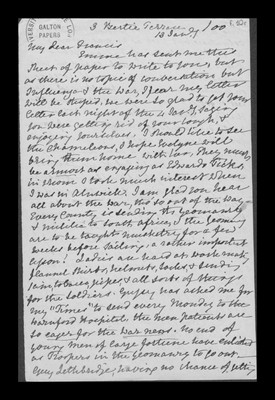 GALTON
PAPERS
3 Bertie Terrace
13 Jan /00
My dear Francis
Emma has sent me this
Sheet of paper to write to you, but
as there is no topic of conversation but
Influenza & the War, I fear my letter
will be stupid. We were so glad to get your
letter last night of the 4 Jan
you were getting rid of your cough, &
enjoying yourselves. I should like to see
the Chameleons, I hope Evelyne will
bring them home with her. They must
be almost as engaging as Edward's Fish
in whom I took much interest when
I was in I am glad you hear
all about the War, tho so out of the way
Every County is sending its Yeomanry
& militia to South Africa, & the Yeomanry
are to be taught musketry for a few
weeks before sailing, a rather important
lesson! Ladies are hard at work making
flannel shirts, helmets, socks & sending
jam, tobacco, pipes, & all sorts of things
for the Soldiers. Guy has asked me for
my "Times" to send every Monday to the
Warnford Hospital. the men patients are
so eager for the War news. No end of
young men of large fortune have enlisted
as Troopers in the Yeomanry to go out.
Guy Lethbridge, having no chance of getting